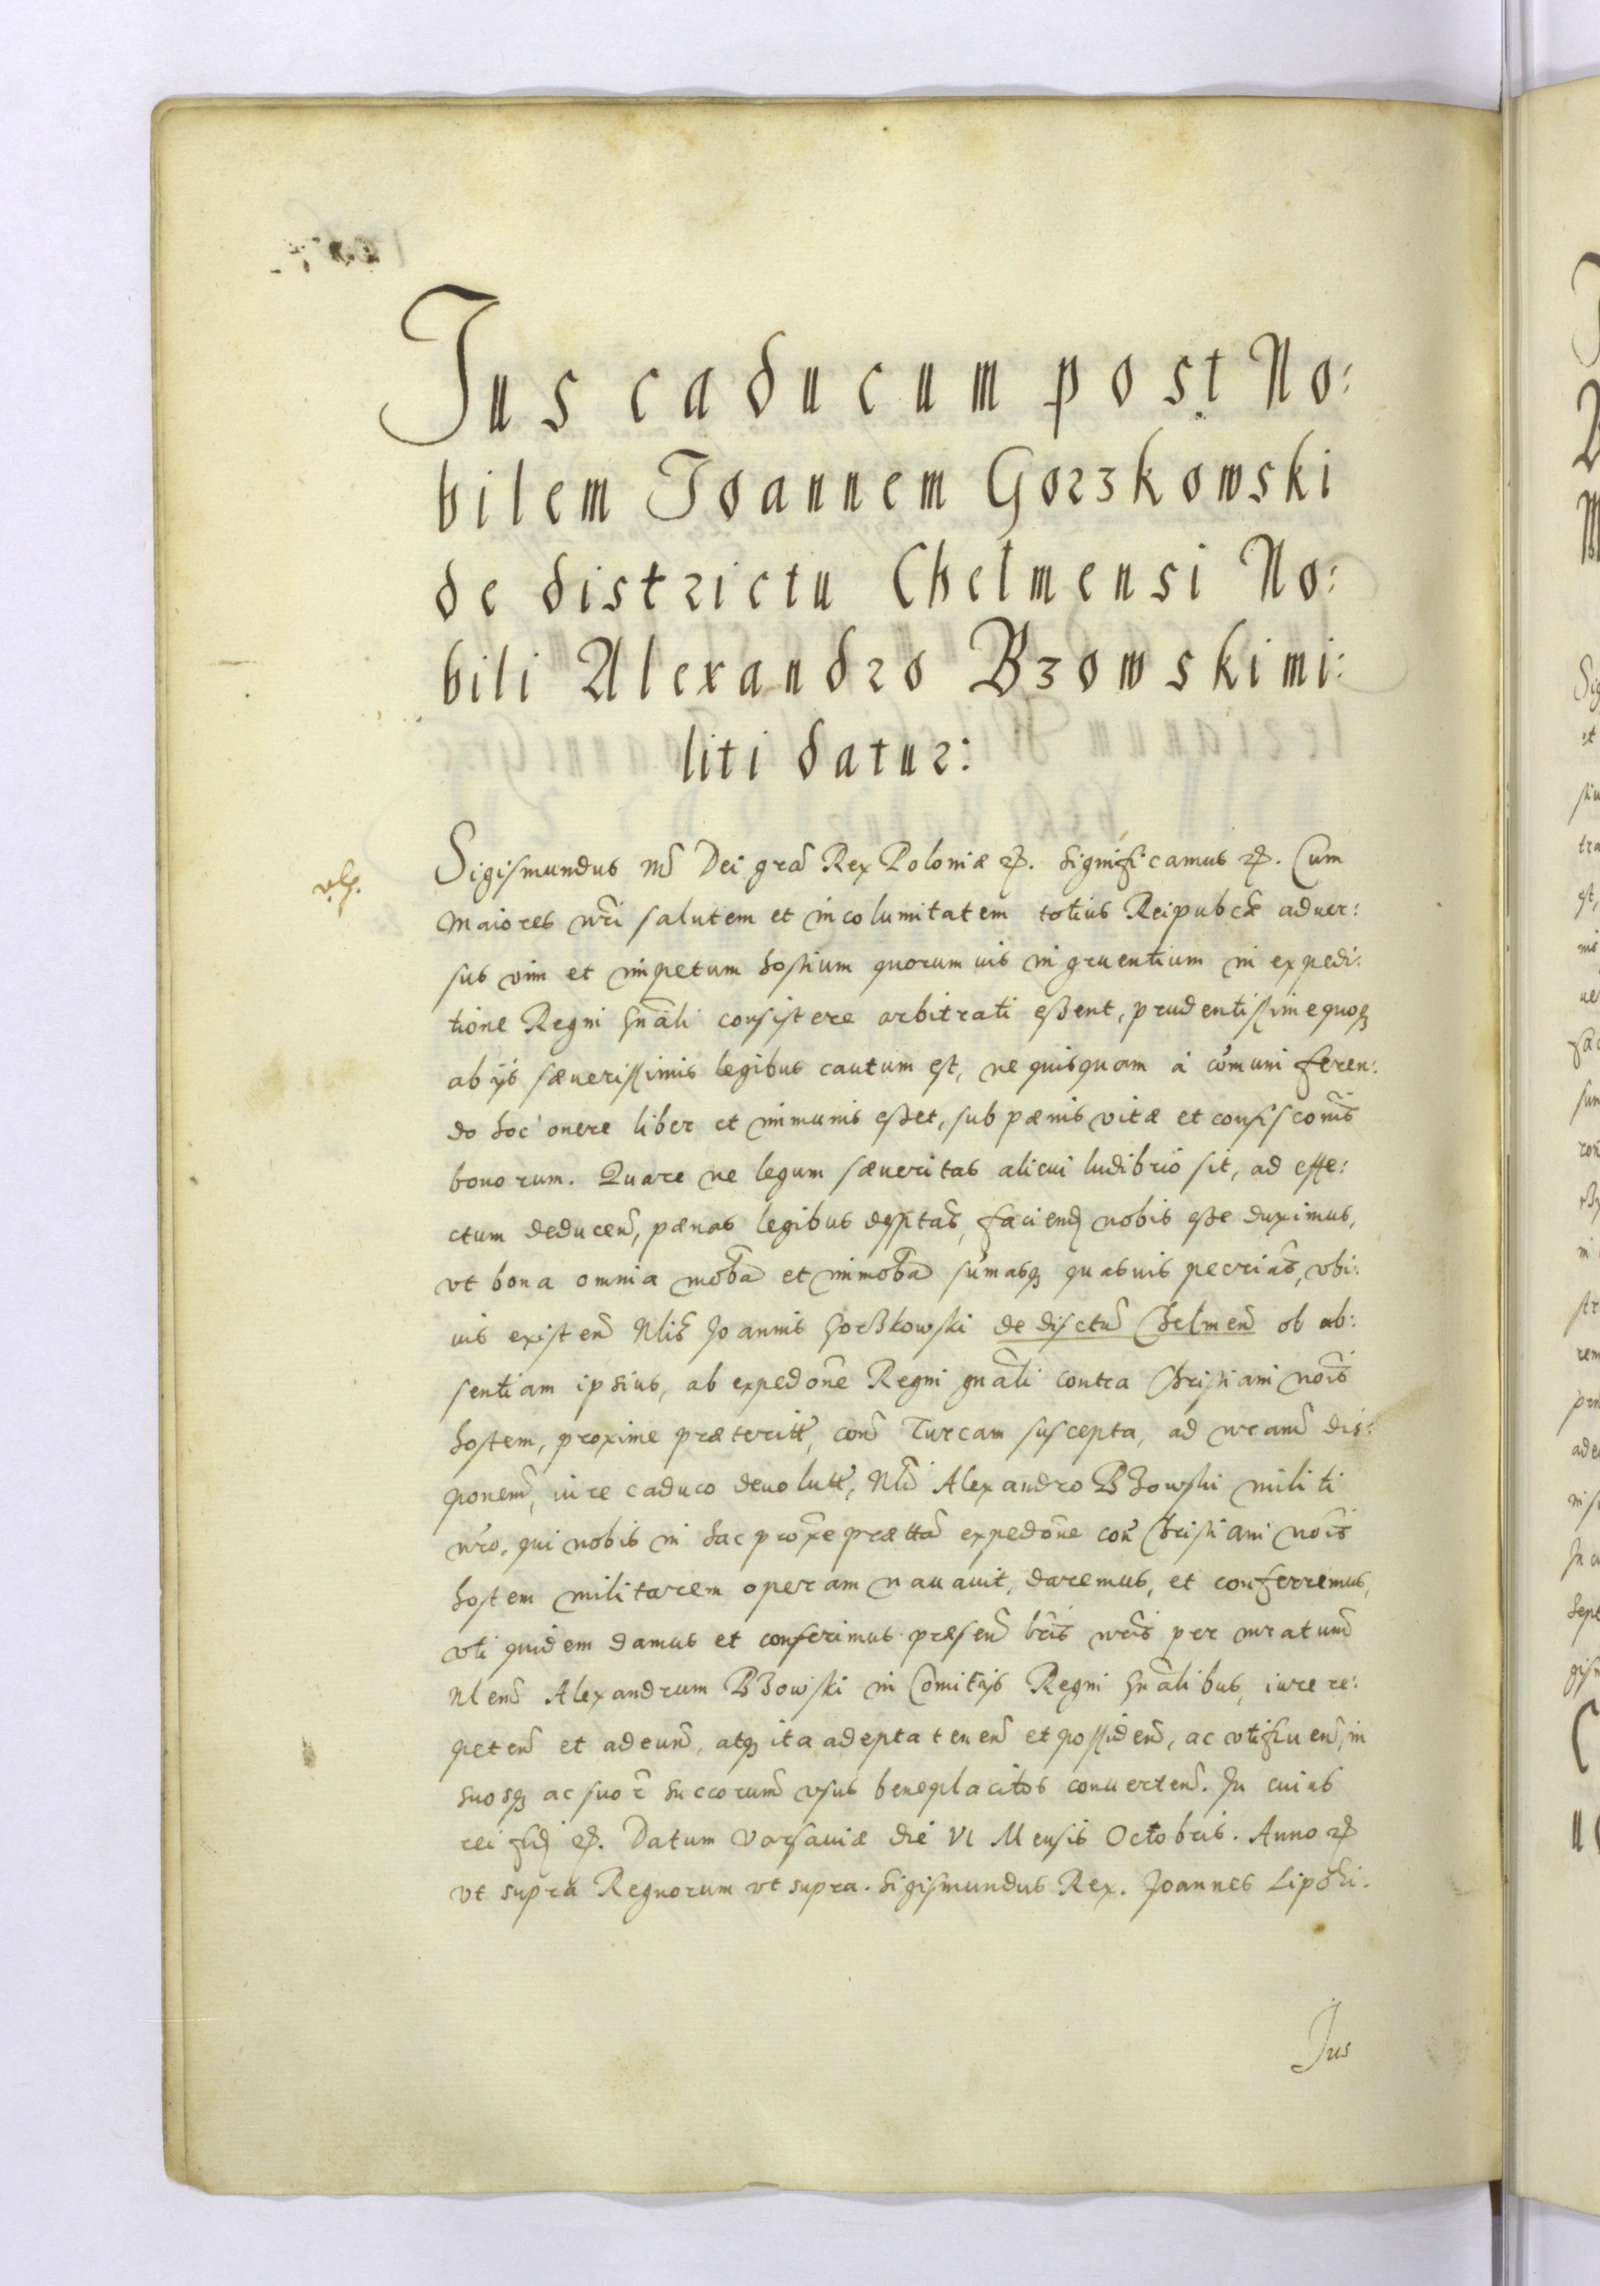 Jus caducum post No:
bilem Joannem Gorzkowski
de districtu Chelmensi No:
bili Alexandro Bzowski mi:
liti datur:
Sigismundus Dei gra͠ Rex Poloniæ &. Significamus &. Cum
Maiores nr͠i salutem et incolumitatem totius Reipubcæ͠ aduer:
sus vim et impetum hostium quorumuis ingruentium in expedi:
tione Regni Gna͠li consistere arbitrati eßent, prudentissimequoq
ab ijs sæuerissimis legibus cautum est, ne quisquam à co͠muni feren:
do hoc onere liber et immunis eßet, sub pænis vitæ et confiscon͠is
bonorum. Quare ne legum sæueritas alicui ludibrio sit, ad effe:
ctum deducen͠, pænas legibus faciend nobis eße duximus,
vt bona omnia mob͠a et immob͠a su͠masq quasuis pecuias͠, vbi:
uis existen͠ Nlis͠ Joannis Gorßkowski de disctu͠ Chelmen͠ ob ab:
sentiam ipsius, ab expedon͠e Regni gna͠li contra Christiani no͠is
hostem, proxime præterit͠, con͠ Turcam suscepta, ad nram͠ dis:
ponem͠, iure caduco deuolut͠, Nli͠ Alexandro Bzowski militi
nr͠o, qui nobis in hac prox͠e prætta͠ expedon͠e con͠ Christiani no͠is
hostem militarem operam nauauit, daremus, et conferremus,
vti quidem damus et conferimus præsen͠ lr͠is nr͠is per mratum͠
Nlem͠ Alexandrum Bzowski in Comitijs Regni Gna͠libus, iure re:
peten͠ et adeun͠, atq ita adepta tenen͠ et possiden͠, ac vtifruen͠, in
suosq ac suor͠ succorum͠ vsus beneplacitos conuerten͠. In cuius
rei fid &. Datum Varsauiæ die VI Mensis Octobris. Anno &
vt supra Regnorum vt supra. Sigismundus Rex. Joannes Lipski.
Jus